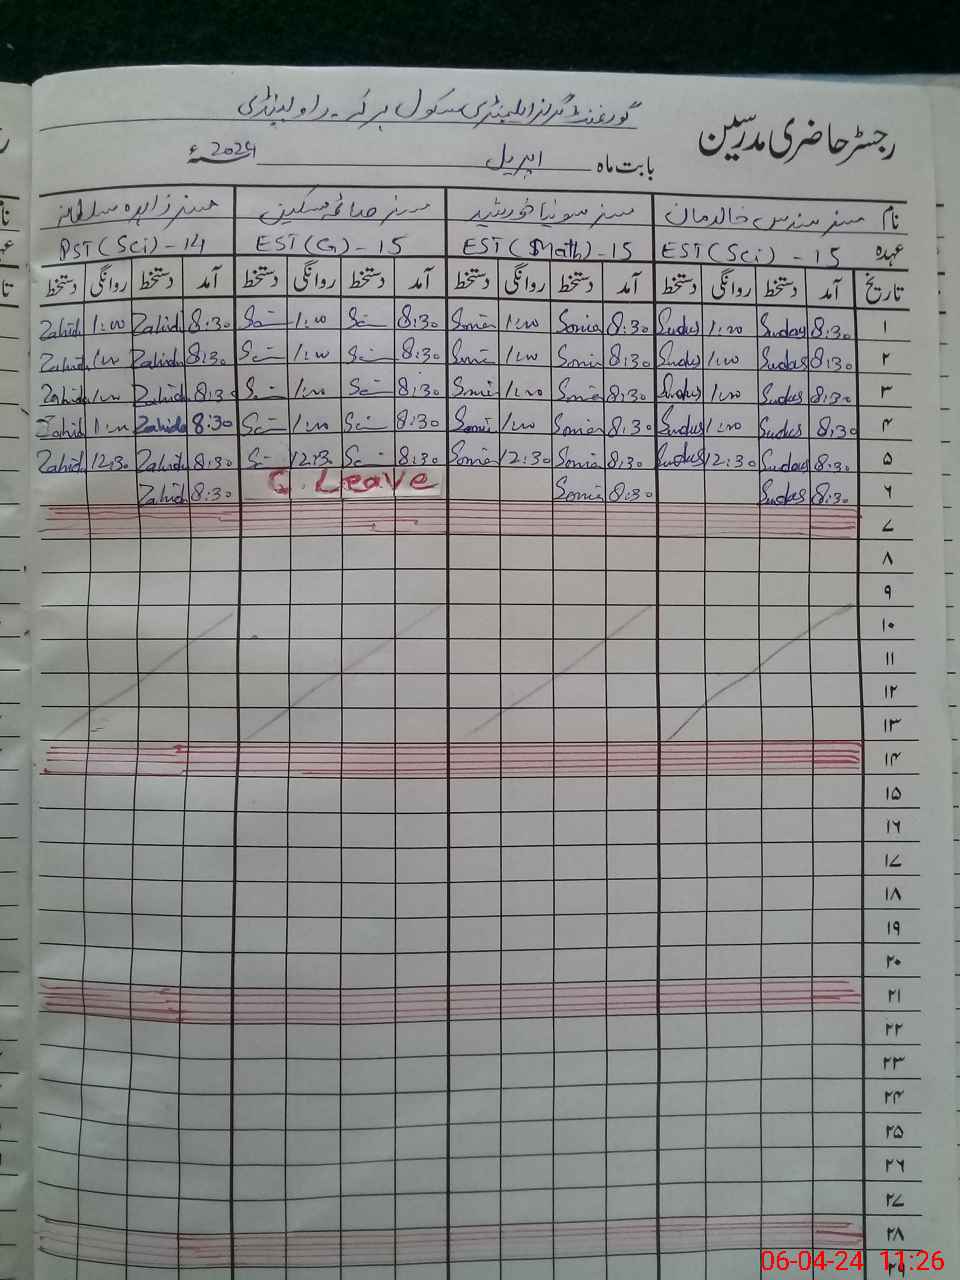 رجسٹر حاضری مدرسین
گورنمنٹ گرلز ایلیمنٹری سکول ہرکہ۔ راولپنڈی
بابت ماہ اپریل 2024ء
نام مسز سندس خالد مسز سونیا خورشید مسز صائمہ مسکین مسز زاہدہ سلطانہ
عہدہ EST (Sci) - 15 EST (Math) - 15 EST (G) - 15 PST (Sci) - 14
تاریخ آمد دستخط روانگی دستخط آمد دستخط روانگی دستخط آمد دستخط روانگی دستخط آمد دستخط روانگی دستخط
۱ 8:30 Sudas 1:00 Sudus 8:30 Sonia 1:00 Sonia 8:30 1:00 8:30 Zahida 1:00 Zahida
۲ 8:30 Sudas 1:00 Sudus 8:30 Sonia 1:00 Sonia 8:30 1:00 8:30 Zahida 1:00 Zahida
۳ 8:30 Sudas 1:00 Sudus 8:30 Sonia 1:00 Sonia 8:30 1:00 8:30 Zahida 1:00 Zahida
۴ 8:30 Sudas 1:00 Sudus 8:30 Sonia 1:00 Sonia 8:30 1:00 8:30 Zahida 1:00 Zahida
۵ 8:30 Sudas 12:30 Sudus 8:30 Sonia 12:30 Sonia 8:30 12:3 8:30 Zahida 12:30 Zahida
۶ 8:30 Sudas 8:30 Sonia C. Leave 8:30 Zahida
۷
۸
۹
۱۰
۱۱
۱۲
۱۳
۱۴
۱۵
۱۶
۱۷
۱۸
۱۹
۲۰
۲۱
۲۲
۲۳
۲۴
۲۵
۲۶
۲۷
۲۸
۲۹
06-04-24 11:26